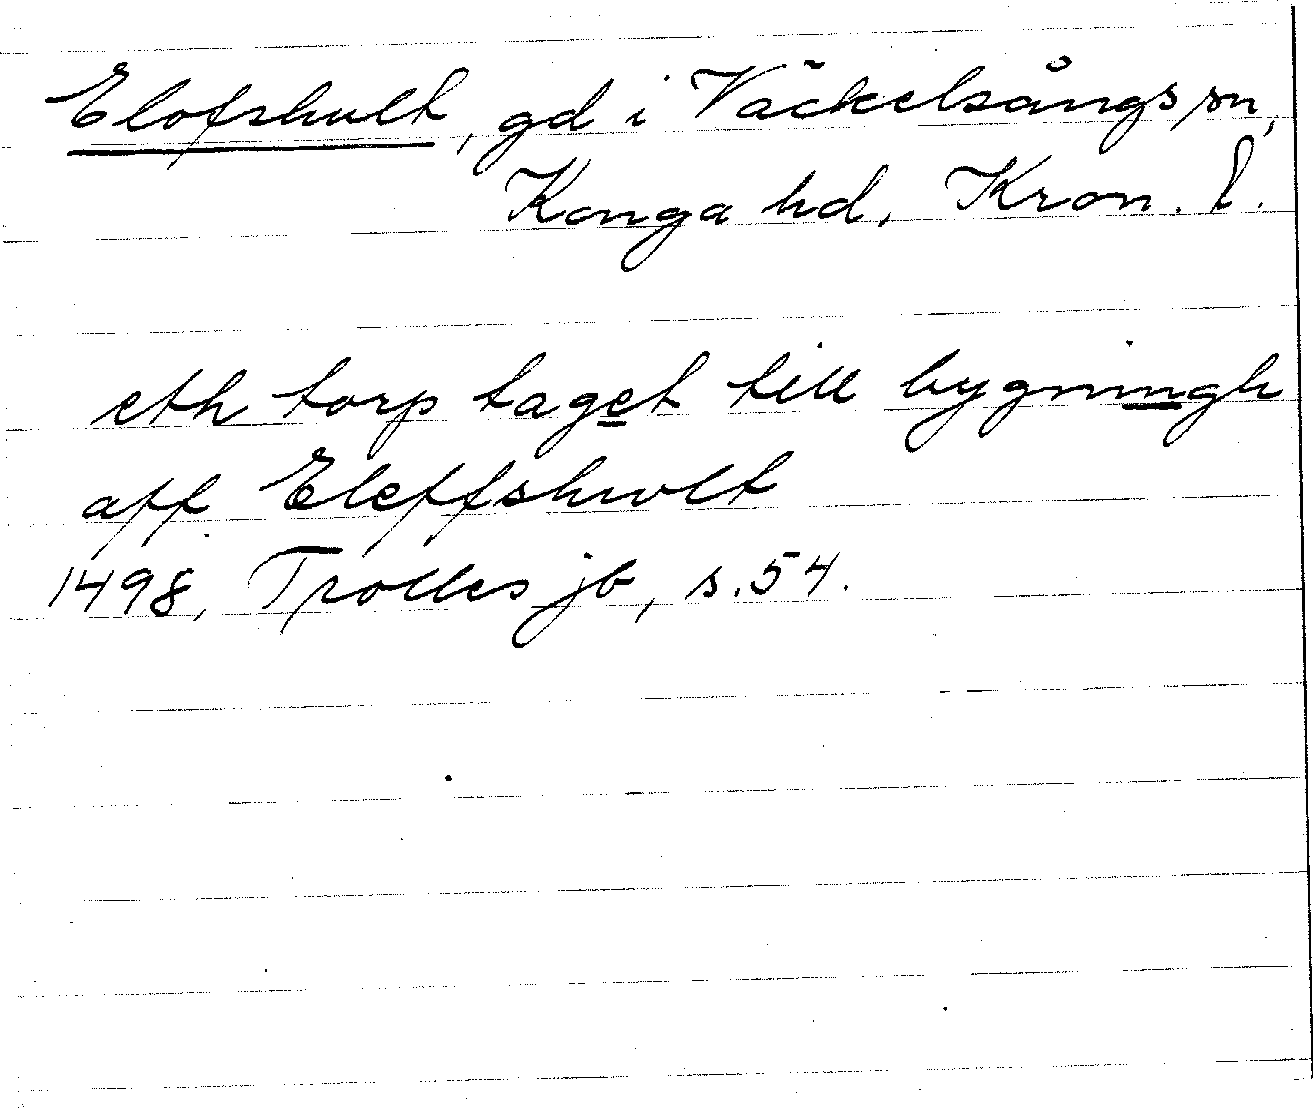 Elofshult, gd i Väckelsångs sn,
Konga hd, Kron. l.
eth torp taget till bygningh
aff Eleffshwlt
1498, Trolles jb, s. 54.